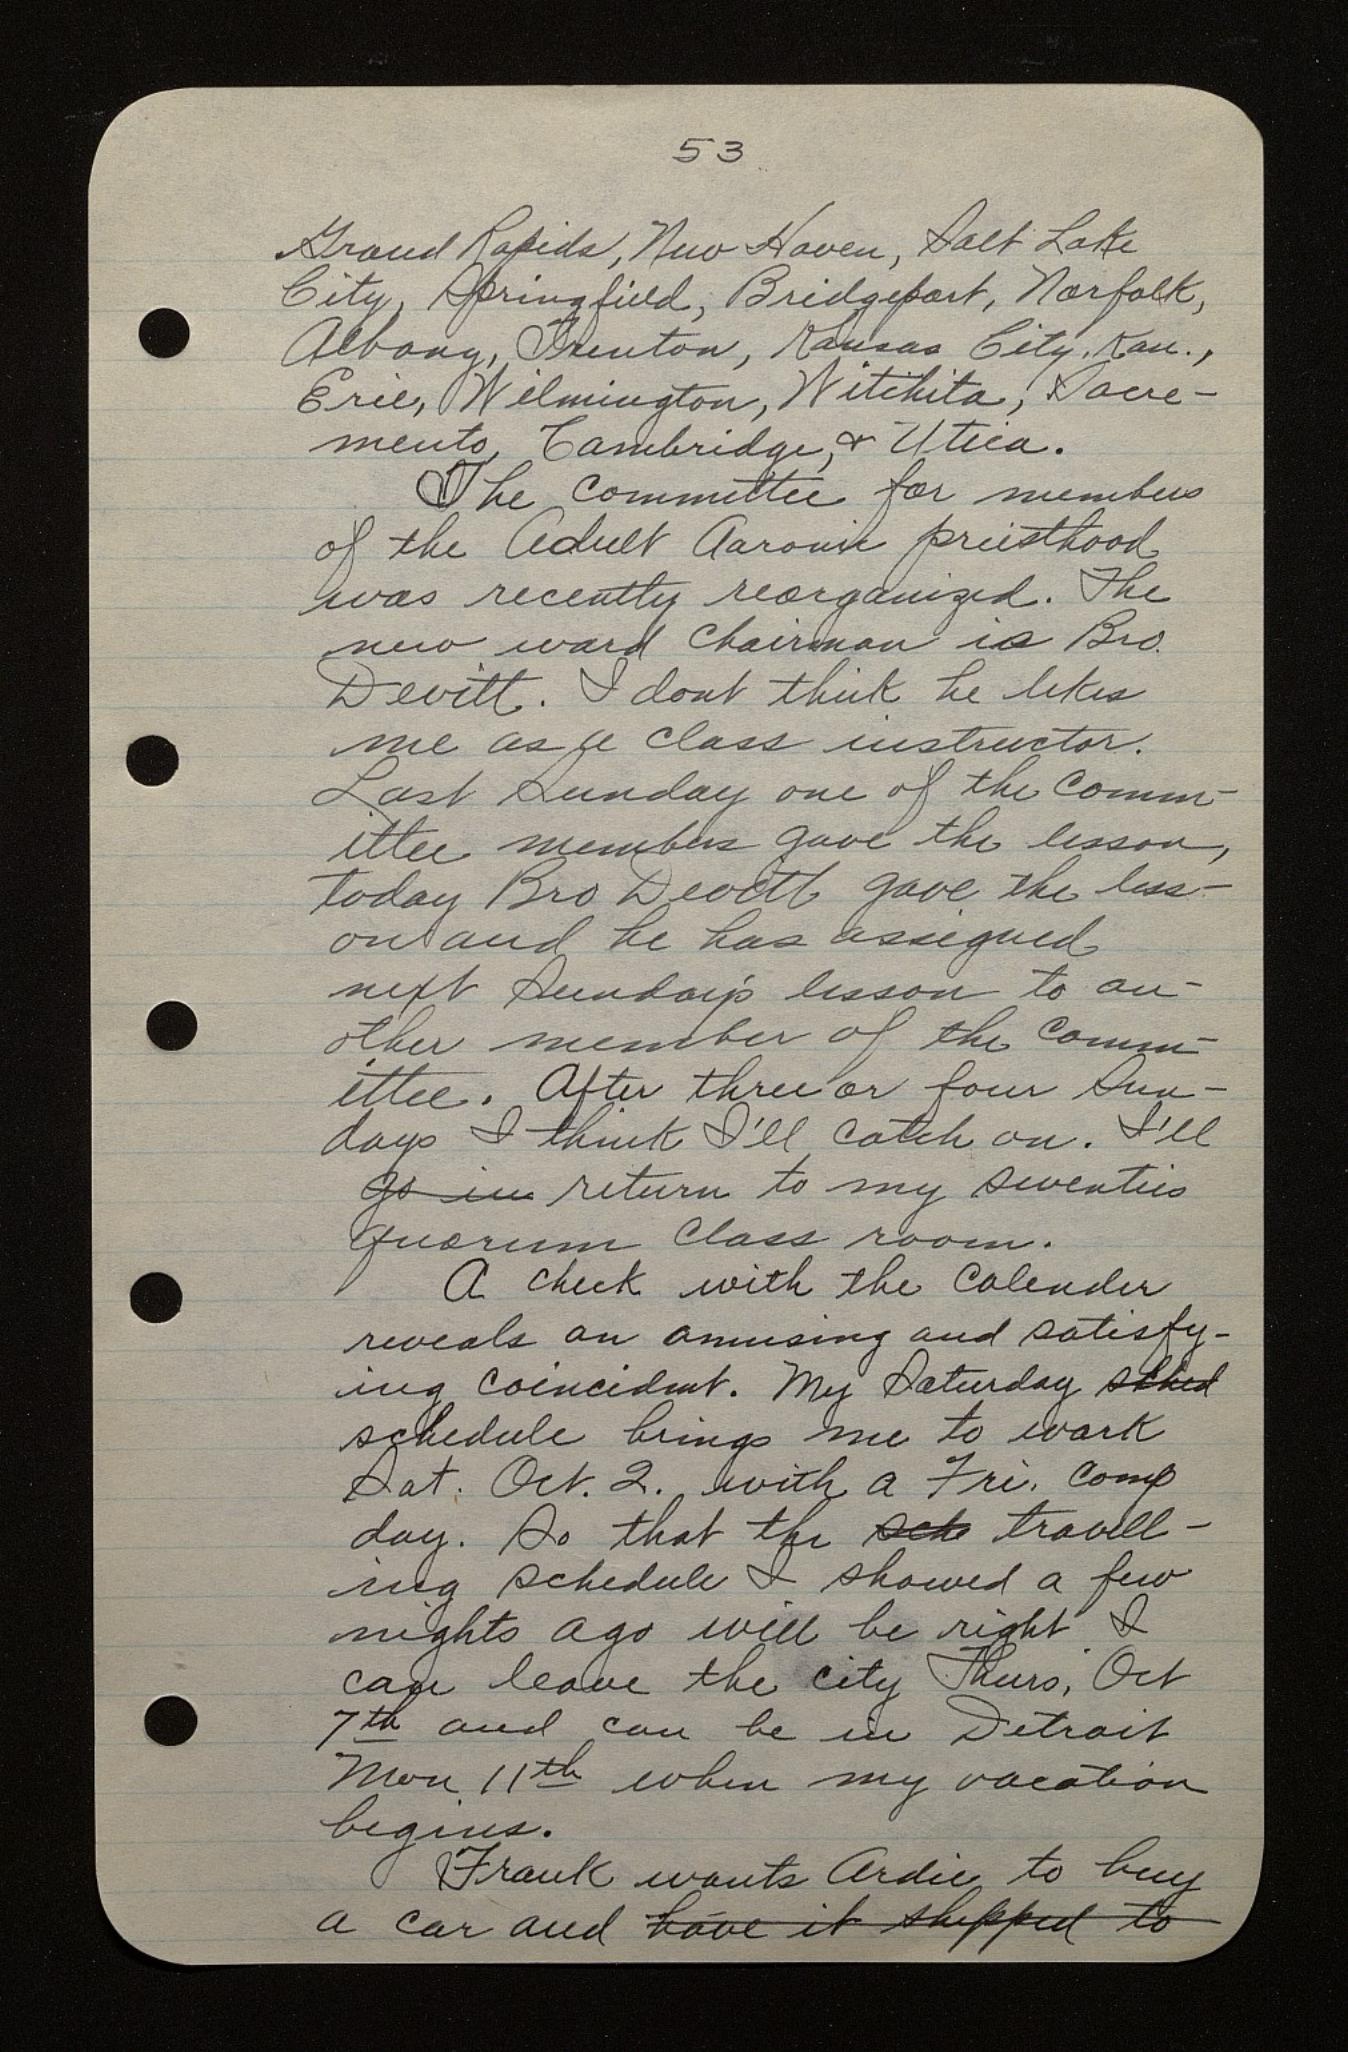 53
Grand Rapids, New Haven, Salt Lake
City, Springfield, Bridgeport, Norfolk,
Albany, Trenton, Kansas City, Kan.,
Erie, Wilmington, Witchita, Sacre-
mento, Cambridge, & Utica.
The committee for members
of the Adult Aaronic priesthood
was recently reorganized. The
new ward chairman is Bro.
Devitt. I dont think he likes
me as a class instructor.
Last Sunday one of the comm-
ittee members gave the lesson,
today Bro Devitt gave the less-
on and he has assigned
next Sunday's lesson to an-
other member of the comm-
ittee. After three or four Sun-
days I think I'll catch on. I'll
go in return to my seventies
quorum class room.
A check with the calender
reveals an amusing and satisfy-
ing coincident. My Saturday sched
schedule brings me to work
Sat. Oct. 2. with a Fri. comp
day. So that the sche travell-
ing schedule I showed a few
nights ago will be right. I
can leave the city Thurs, Oct
7th and can be in Detroit
Mon 11th when my vacation
begins.
Frank wants Ardie to buy
a car and have it shipped to